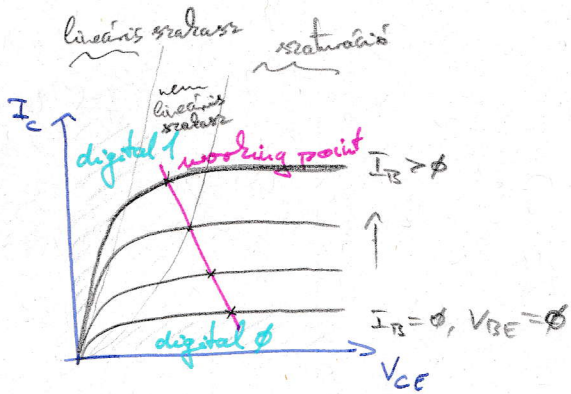 lineáris szakasz
szaturáció
nem
lineáris
szakasz
I_C
digital 1
working point
I_B > ∅
I_B = ∅, V_BE = ∅
digital ∅
V_CE